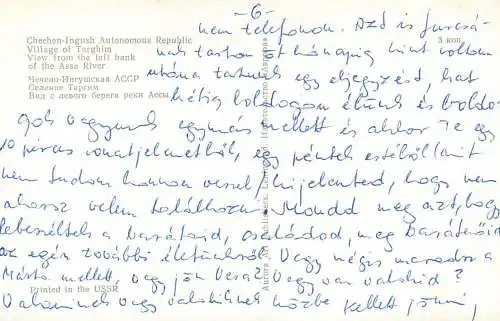 -6-
nem telefonon. Azt is furcsá-
Chechen-Ingush Autonomous Republic
Village of Targhim
View from the left bank
of the Assa River
3 коп.
nak tartom öt hónapig kint voltam
Чечено-Ингушская АССР
Селение Таргим
Вид с левого берега реки Ассы
utána tartunk egy eljegyzést, hat
hétig boldogan élünk és boldo-
gok vagyunk egymás mellett és akkor Te egy
10 perces vonatjelenetből, egy péntek estéből (amit
nem tudom honnan veszel) kijelented, hogy nem
akarsz velem találkozni. Mondd meg azt, hogy
lebeszéltek a barátaid, családod, meg barátnőid
az egész további életünkről? Vagy mégis maradsz a
Márta mellett, vagy jön Vera? Vagy van valakid?
Valaminek vagy valakinek közbe kellett jönni,
Printed in the USSR
Aurora Art Publishers, Leningrad